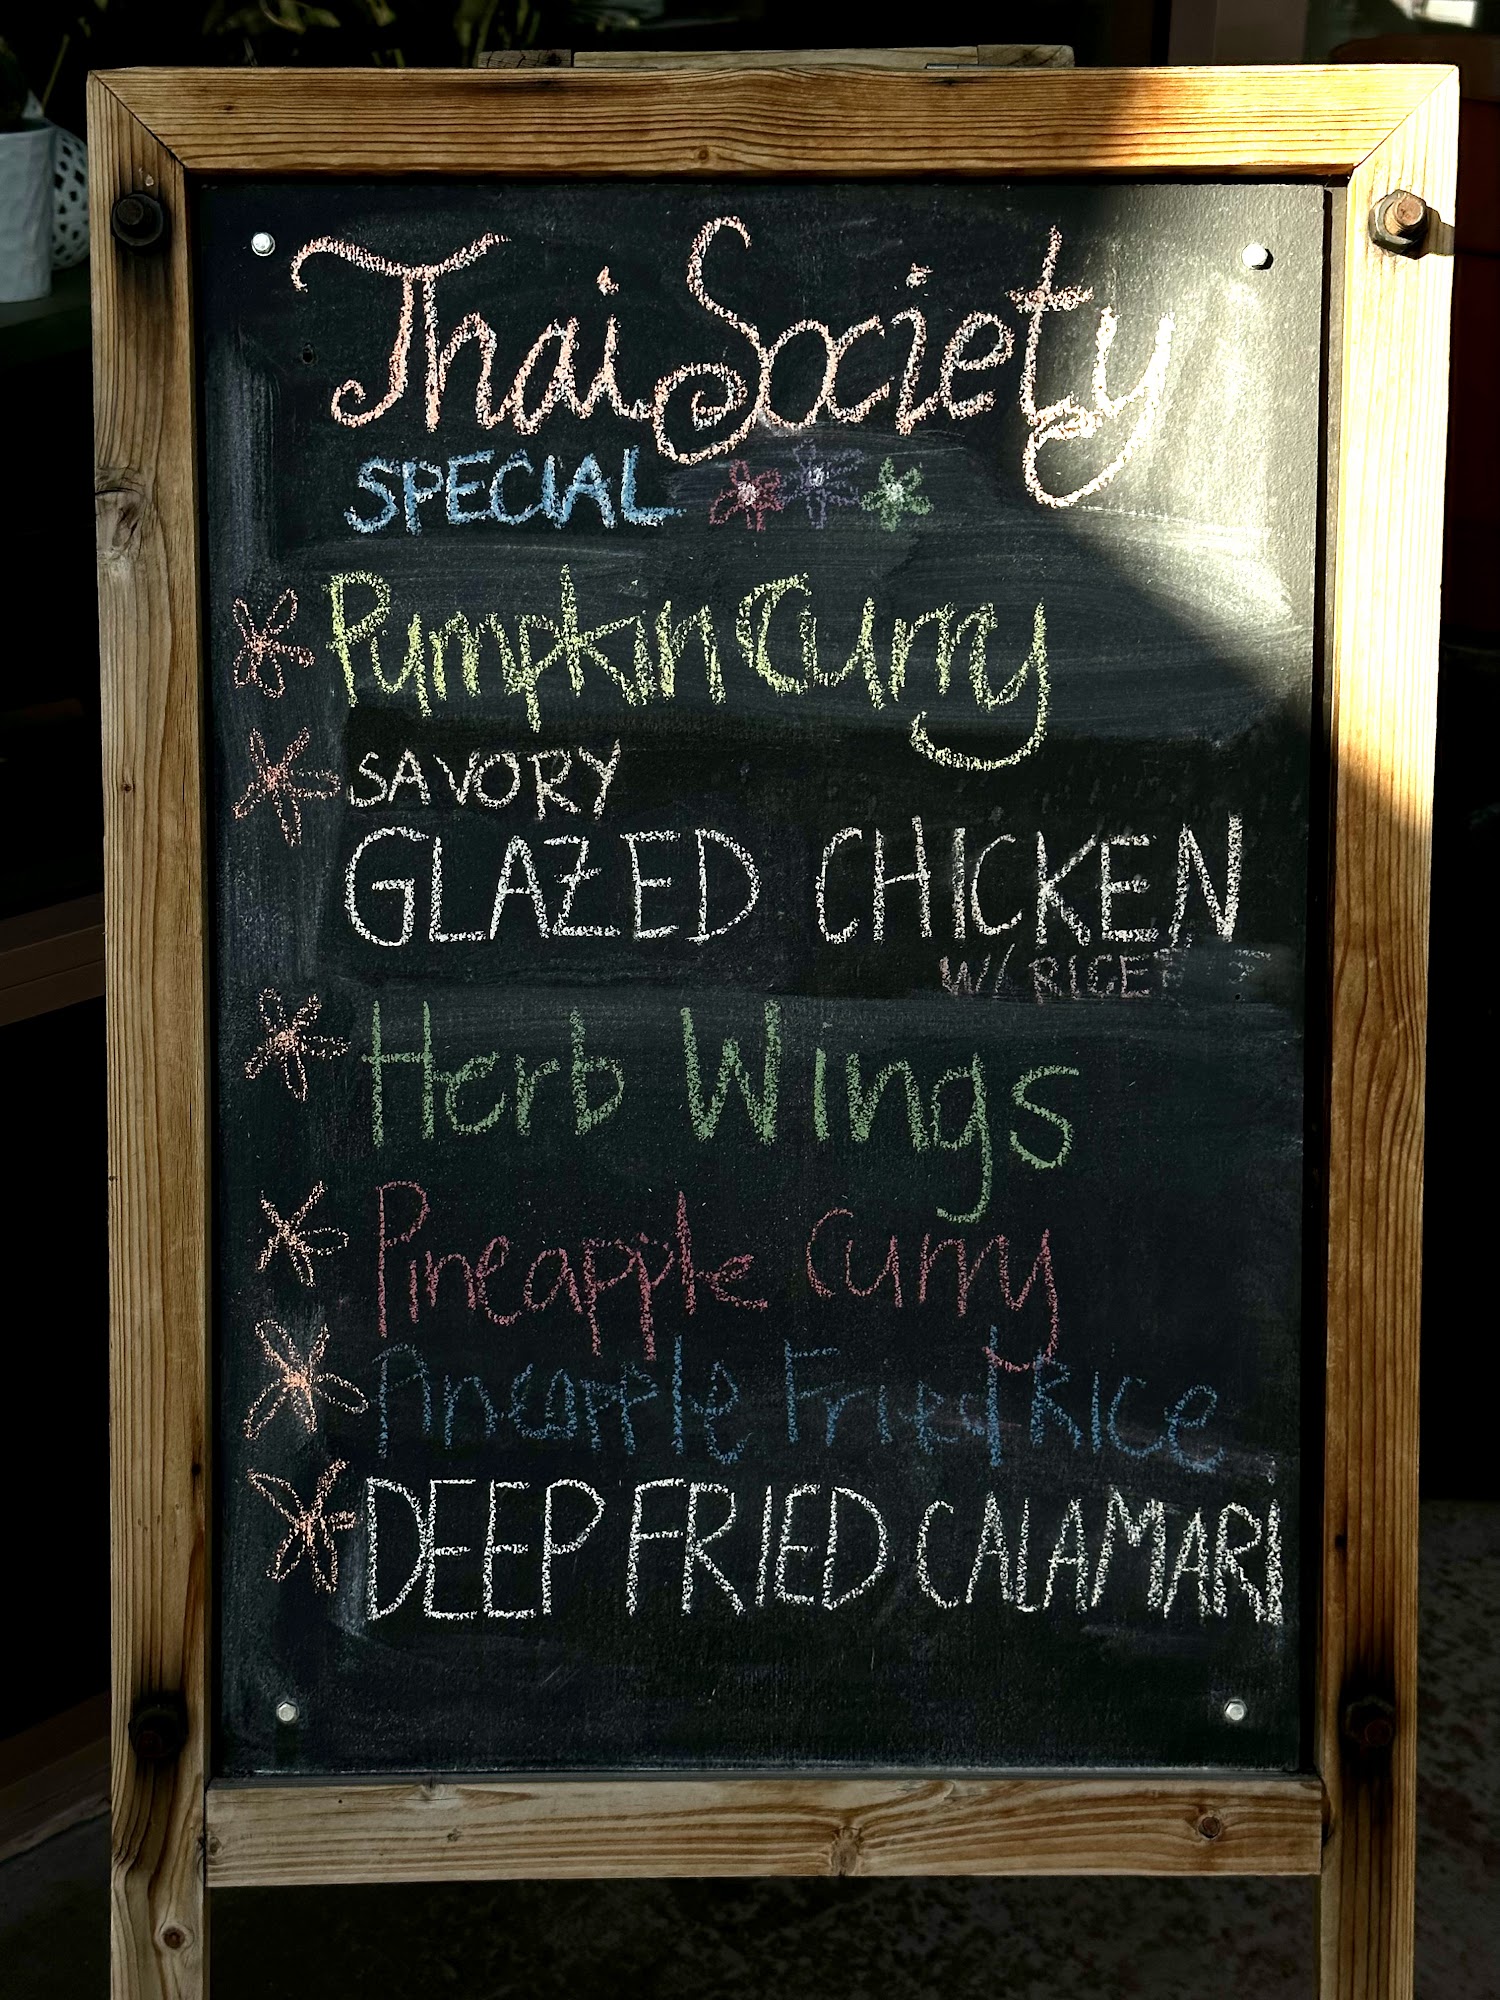 Thai Society
SPECIAL
Pumpkin Curry
SAVORY
GLAZED CHICKEN
W/ RICE
Herb Wings
Pineapple Curry
Pineapple Fried Rice
DEEP FRIED CALAMARI